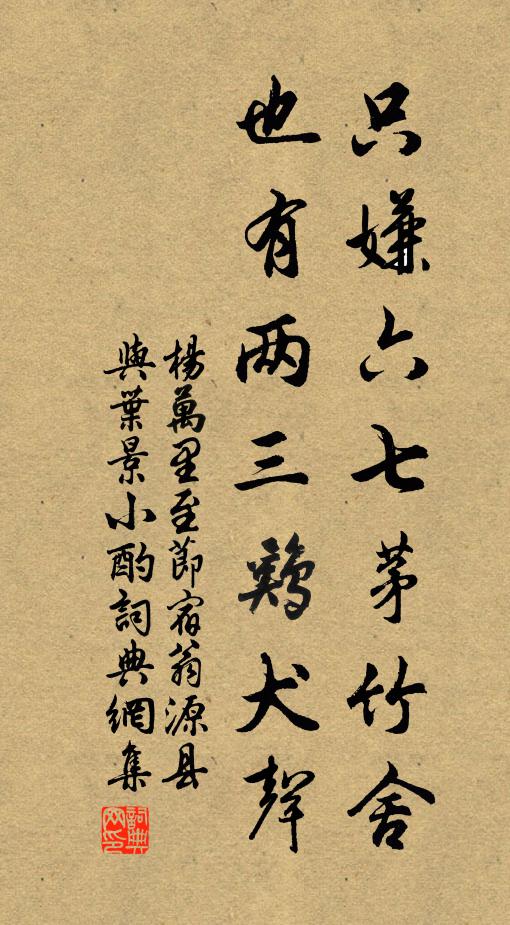 只嫌六七茅竹舍
也有两三鷄犬聲
楊萬里至節宿翁源县
與葉景小酌詞典網集
詞典网印